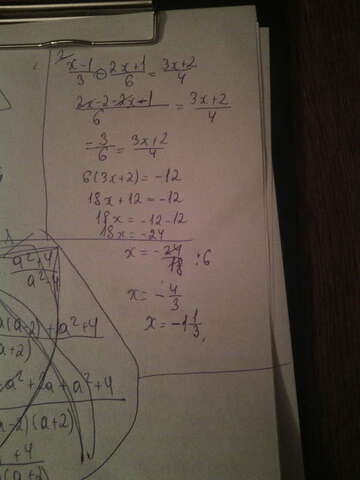 2.
x-1/3 - 2x+1/6 = 3x+2/4
2x-2-2x-1/6 = 3x+2/4
-3/6 = 3x+2/4
6(3x+2) = -12
18x+12 = -12
18x = -12-12
18x = -24
x = -24/18 :6
x = -4/3
x = -1 1/3
a²+4
a²-4
(a-2)+a²+4
a+2)
a²+2a+a²+4
a-2)(a+2)
+4
(a+2)